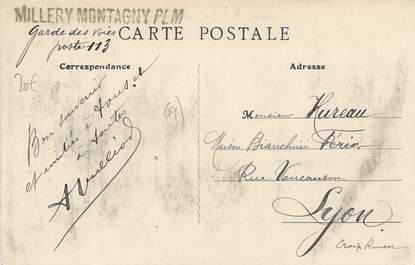 MILLERY MONTAGNY PLM
Garde des voies
poste 113
CARTE POSTALE
Correspondance
Adresse
20€
Bon souvenir
et amitié à tous et
à toutes
(69)
Monsieur Hureau
Maison Bianchini Férier
Rue Vaucanson
Lyon
Croix Rousse